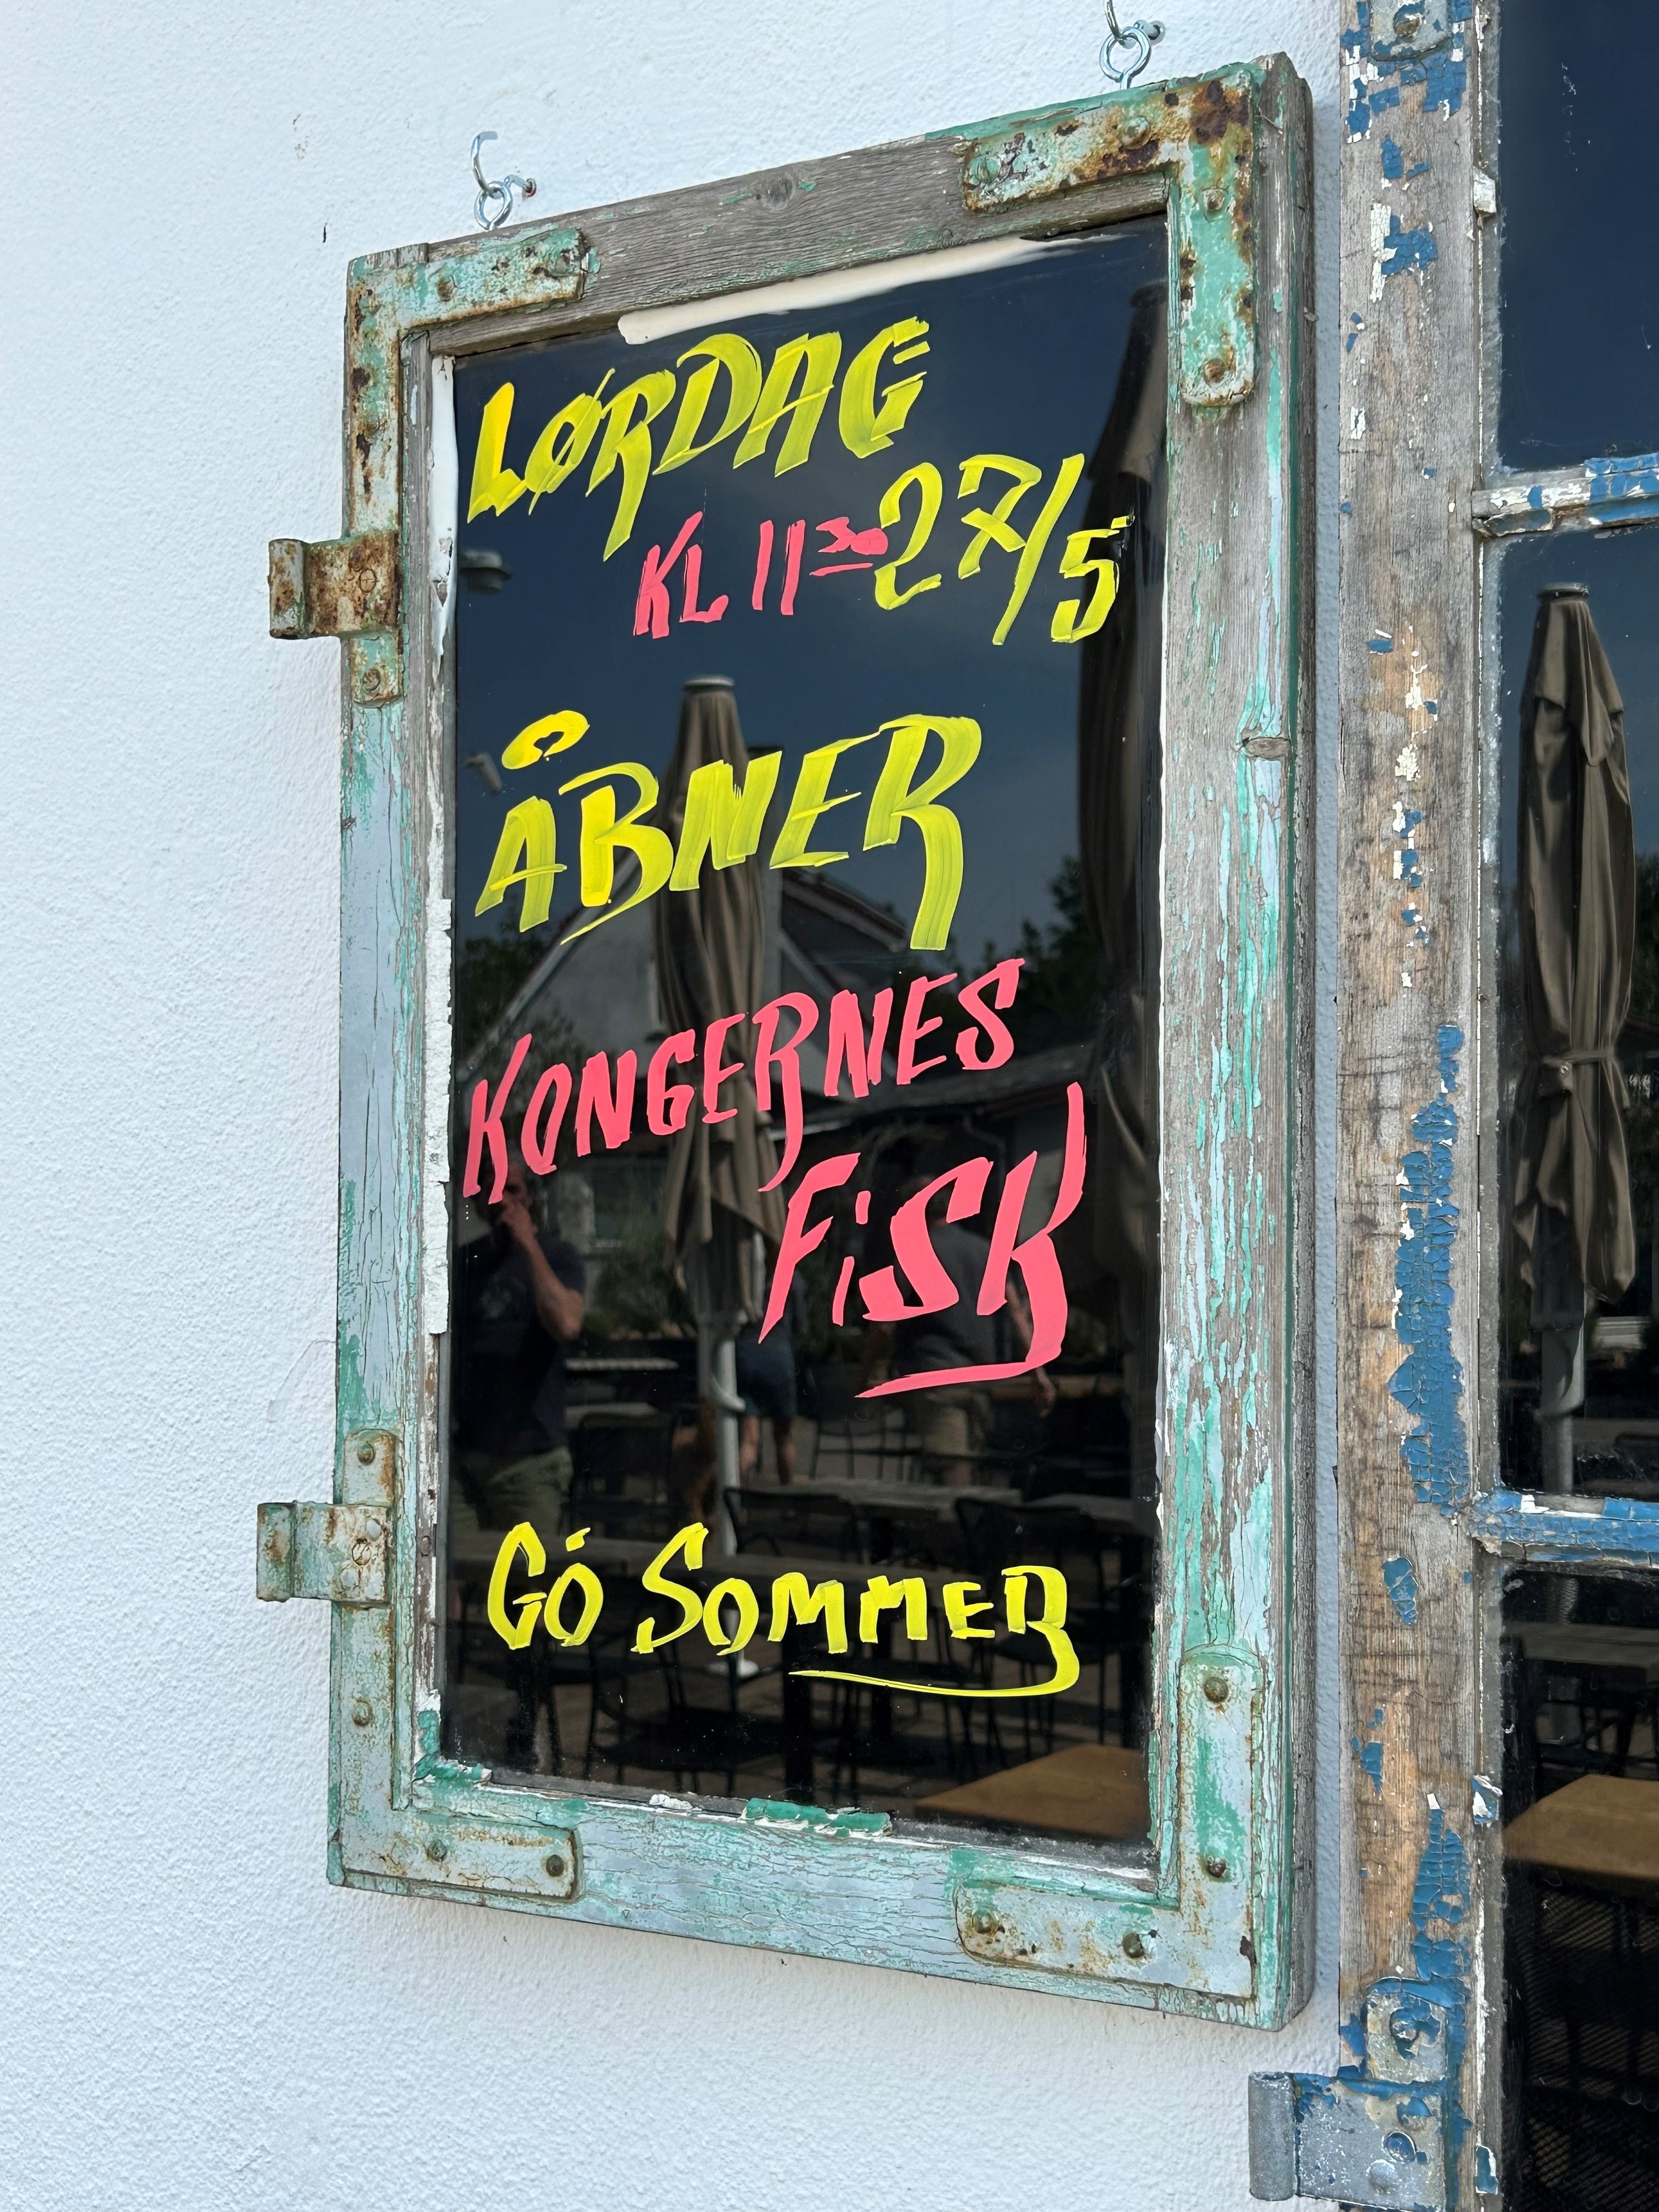 LØRDAG
27/5
KL 11³⁰
ÅBNER
KONGERNES
FiSK
GÓ SOMMER